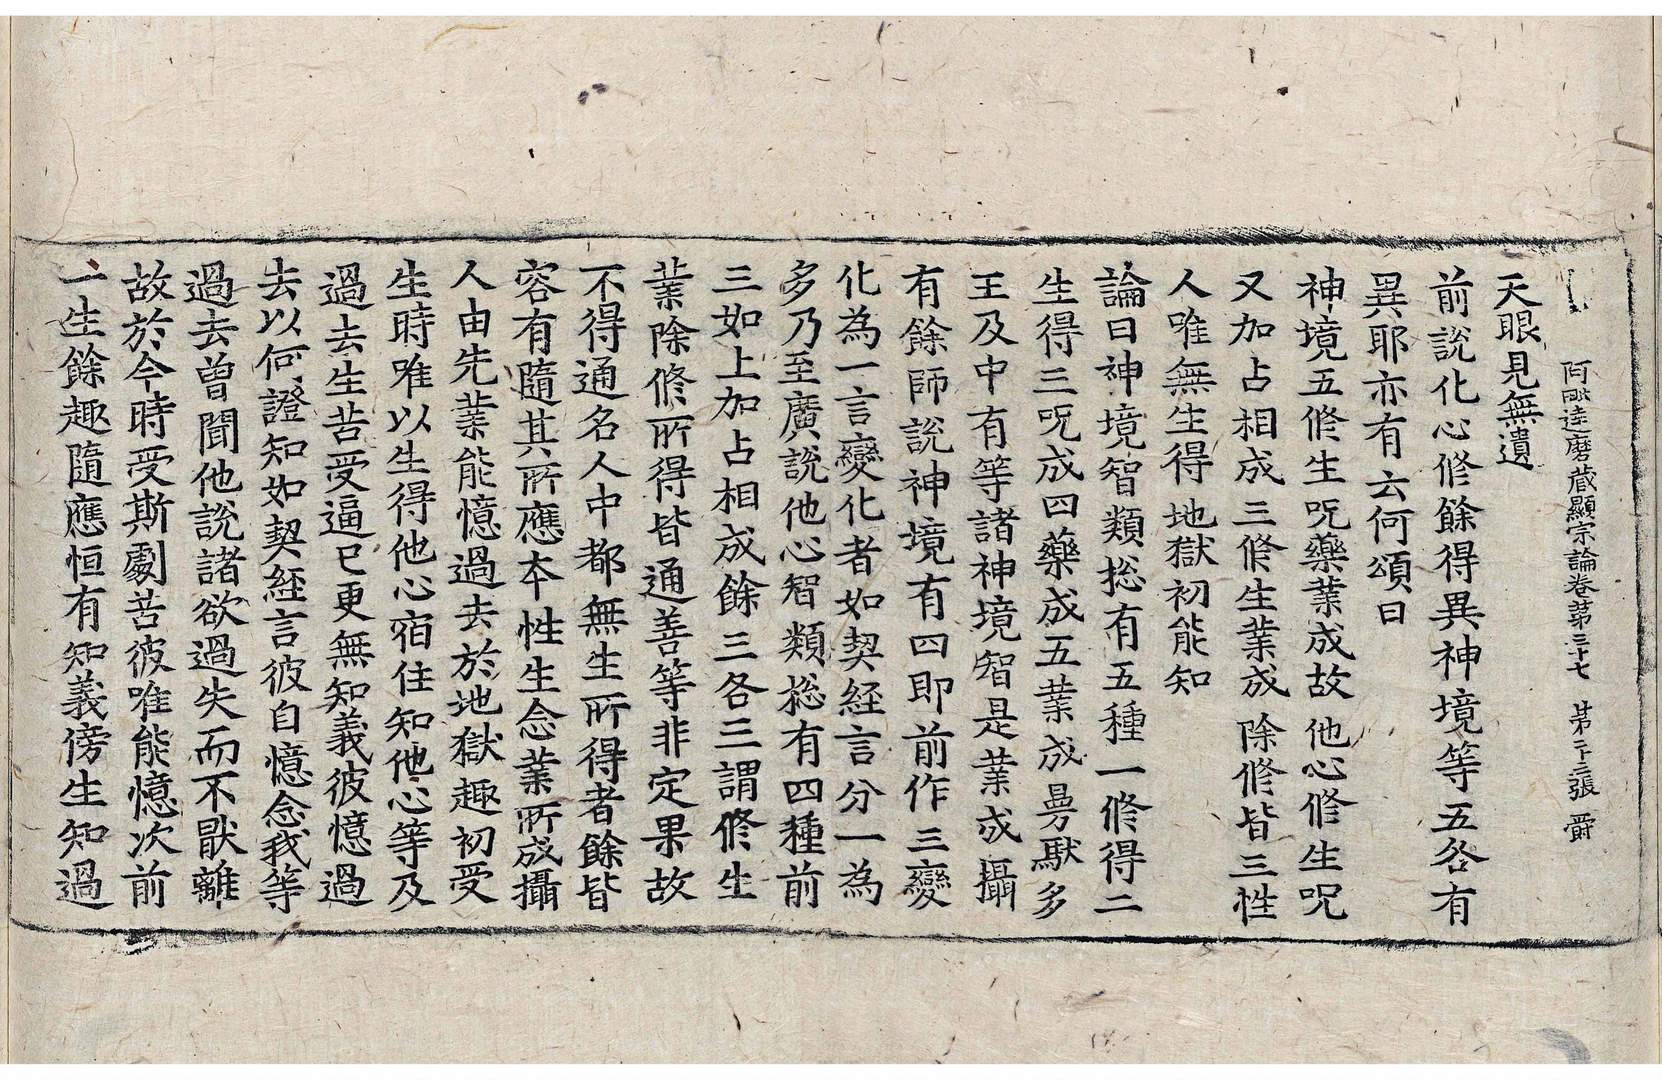 阿毗達磨藏顯宗論卷第三十七 第二十三張 爵
天眼見無遺
前說化心修餘得異神境等五各有
異耶亦有云何頌曰
神境五修生呪藥業成故 他心修生呪
又加占相成 三修生業成 除修皆三性
人唯無生得 地獄初能知
論曰神境智類揔有五種一修得二
生得三呪成四藥成五業成曼馱多
王及中有等諸神境智是業成攝
有餘師說神境有四即前作三變
化為一言變化者如契經言分一為
多乃至廣說他心智類揔有四種前
三如上加占相成餘三各三謂修生
業除修所得皆通善等非定果故
不得通名人中都無生所得者餘皆
容有隨其所應本性生念業所成攝
人由先業能憶過去於地獄趣初受
生時唯以生得他心宿住知他心等及
過去生苦受逼已更無知義彼憶過
去以何證知如契經言彼自憶念我等
過去曾聞他說諸欲過失而不厭離
故於今時受斯劇苦彼唯能憶次前
一生餘趣隨應恒有知義傍生知過